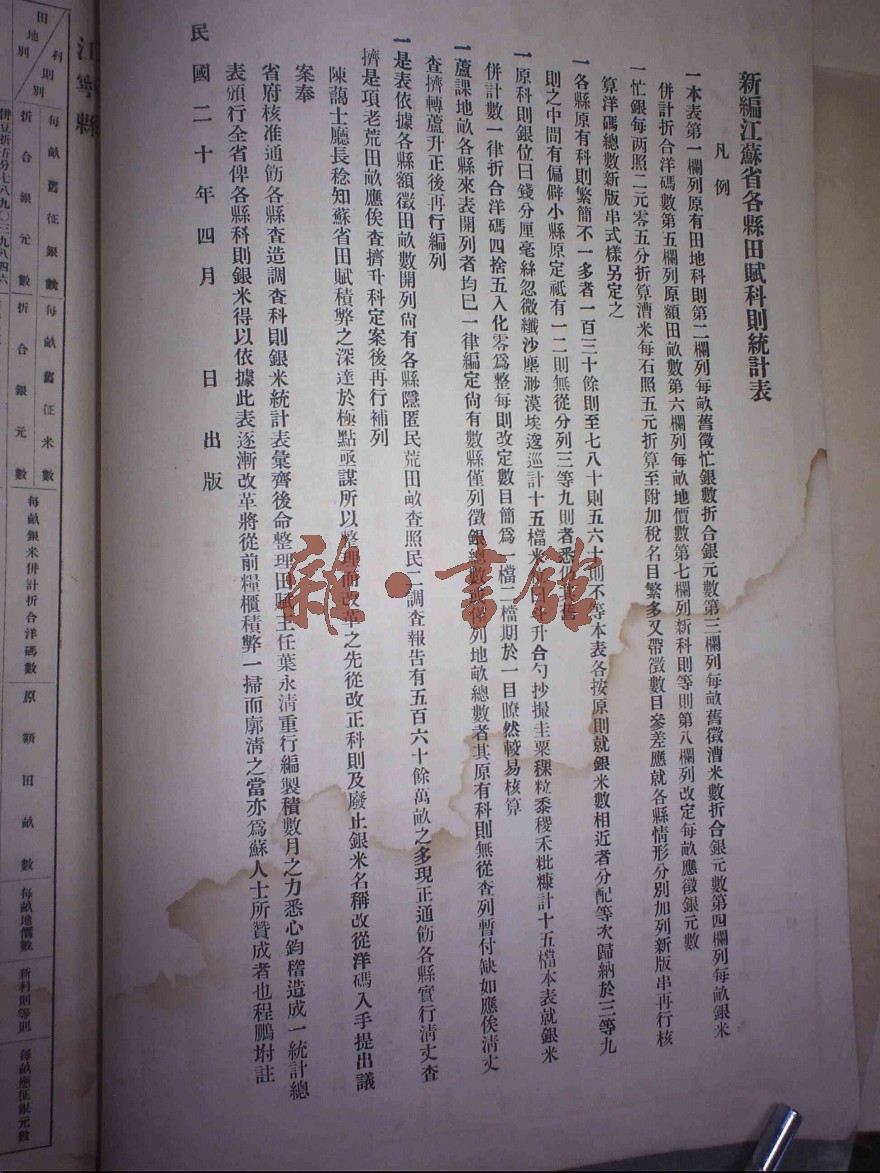 新編江蘇省各縣田賦科則統計表
凡例
一本表第一欄列原有田地科則第二欄列每畝舊徵忙銀數折合銀元數第三欄列每畝舊徵漕米數折合銀元數第四欄列每畝銀米
併計折合洋碼數第五欄列原額田畝數第六欄列每畝地價數第七欄列新科則等則第八欄列改定每畝應徵銀元數
一忙銀每两照二元零五分折算漕米每石照五元折算至附加稅名目繁多又帶徵數目參差應就各縣情形分別加列新版串再行核
算洋碼總數新版串式樣另定之
一各縣原有科則繁簡不一多者一百三十餘則至七八十則五六十則不等本表各按原則就銀米數相近者分配等次歸納於三等九
則之中間有偏僻小縣原定祗有一二則無從分列三等九則者悉仍其舊
一原科則銀位曰錢分厘毫絲忽微纖沙塵渺漠埃逡巡計十五檔米位曰斗升合勺抄撮圭粟稞粒黍稷禾粃糠計十五檔本表就銀米
併計數一律折合洋碼四捨五入化零爲整每則改定數目簡爲一檔二檔期於一目瞭然較易核算
一蘆課地畝各縣來表開列者均巳一律編定尙有數縣僅列徵銀總數或僅列地畝總數者其原有科則無從查列暫付缺如應俟淸丈
查擠轉蘆升正後再行編列
一是表依據各縣額徵田畝數開列尙有各縣隱匿民荒田畝查照民二調查報告有五百六十餘萬畝之多現正通飭各縣實行淸丈查
擠是項老荒田畝應俟查擠升科定案後再行補列
陳藹士廳長稔知蘇省田賦積弊之深達於極點亟謀所以整理而改革之先從改正科則及廢止銀米名稱改從洋碼入手提出議
案奉
省府核准通飭各縣查造調查科則銀米統計表彙齊後命整理田賦主任葉永淸重行編製積數月之力悉心鈎稽造成一統計總
表頒行全省俾各縣科則銀米得以依據此表逐漸改革將從前糧櫃積弊一掃而廓淸之當亦爲蘇人士所贊成者也程鵬坿註
民國二十年四月 日出版
江寧縣
科則別
田地別
每畝舊征銀數
折合銀元數
每畝舊征米數
折合銀元數
每畝銀米併計折合洋碼數
原額田畝數
每畝地價數
新科則等則
每畝應征銀元數
雜·書館